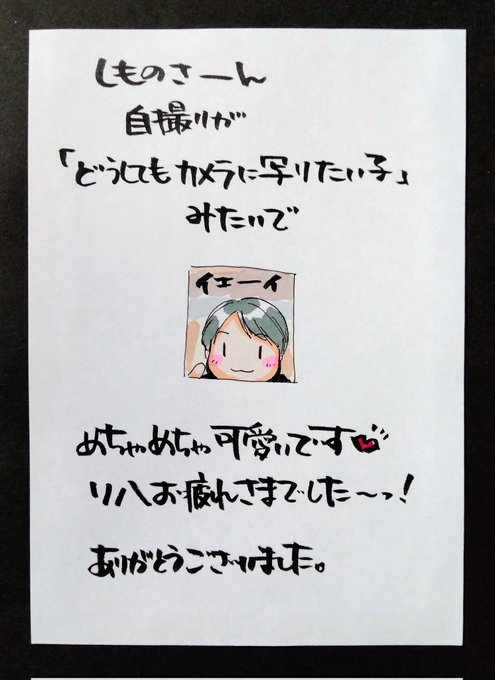 しものさーん
自撮りが
「どうしてもカメラに写りたい子」
みたいで
イエーイ
めちゃめちゃ可愛いです
リハお疲れさまでした〜っ!
ありがとうございました。